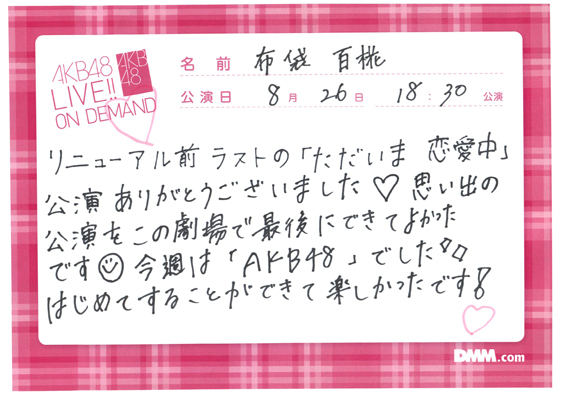 AKB48
LIVE!!
ON DEMAND
AKB
48
名前 布袋 百椛
公演日 8月 26日 18:30 公演
リニューアル前 ラストの「ただいま 恋愛中」
公演 ありがとうございました♡ 思い出の
公演をこの劇場で最後にできてよかった
です☺ 今週は「AKB48」でした
はじめてすることができて楽しかったです!
DMM.com